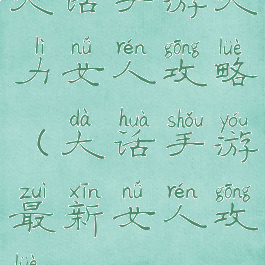 大话手游大
lì nǚ rén gōng lüè
力女人攻略
dà huà shǒu yóu
（大话手游
zuì xīn nǚ rén gōng
最新女人攻
lüè